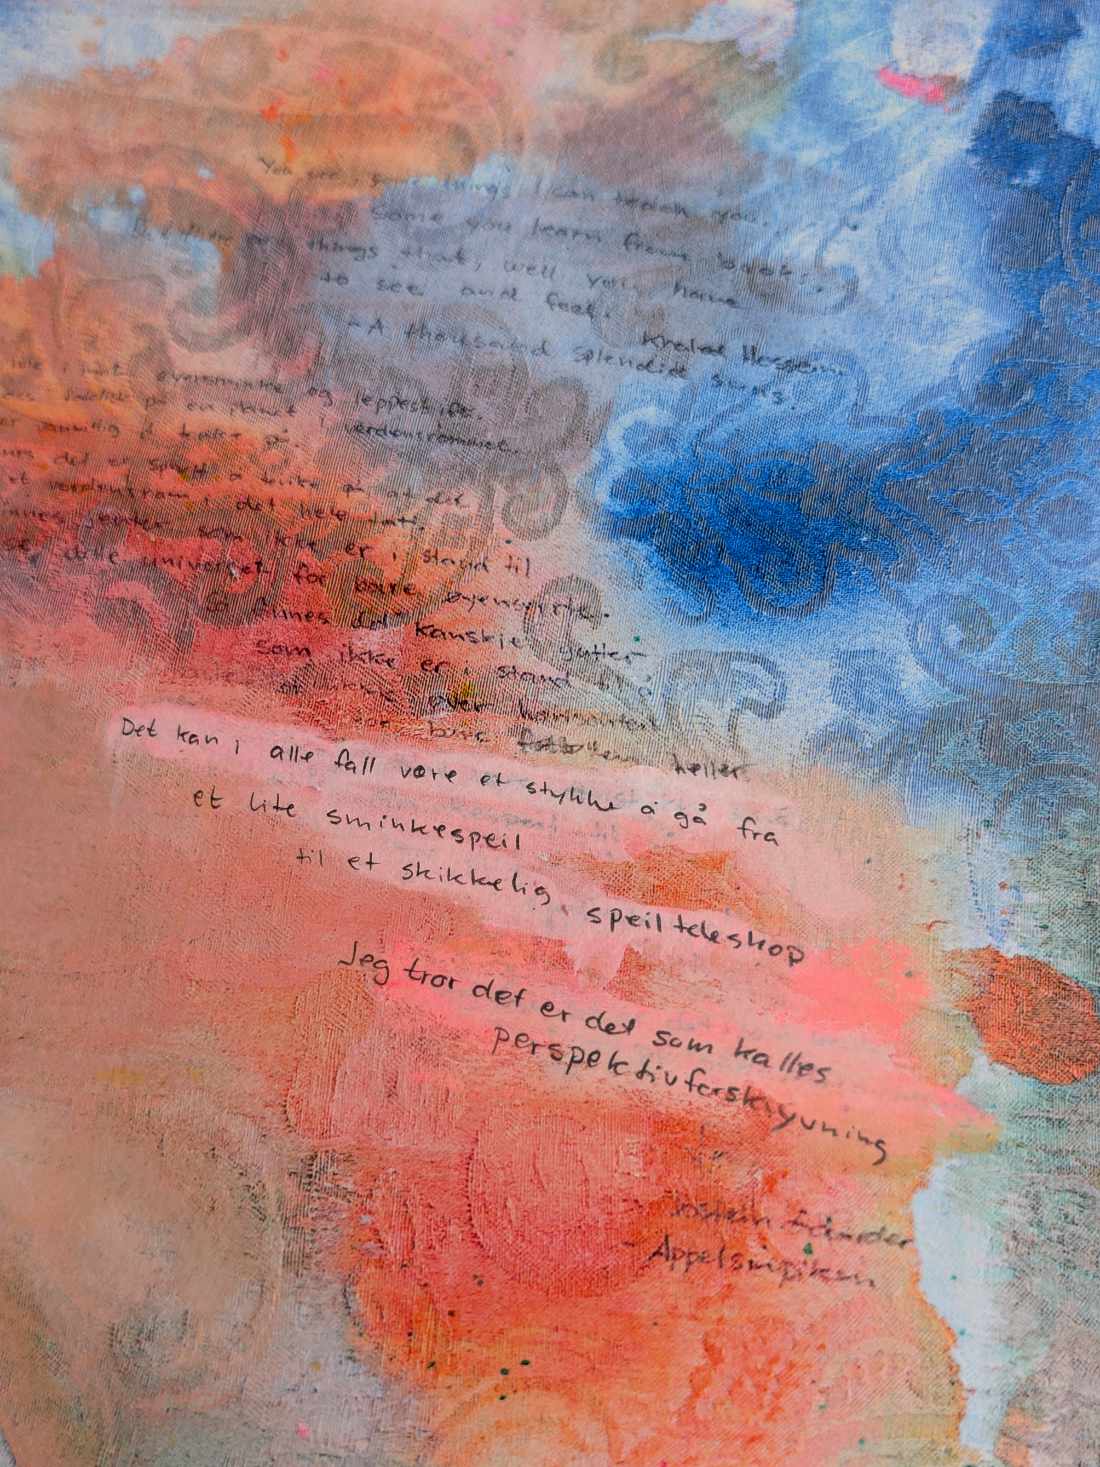 You see, some things I can teach you.
Some you learn from books.
But there are things that, well you have
to see and feel.
Khaled Hossein.
- A thousand splendid suns.
i øyensminke og leppestift.
på en planet i verdensrommet.
er å tenke på.
det er sprøtt å tenke på at det
et verdensrom i det hele tatt.
jenter som ikke er i stand til
se dette universet for bare øyensverte.
Så finnes det kanskje gutter
som ikke er i stand til å
over horisonten
for bare fotballen heller
Det kan i alle fall være et stykke å gå fra
et lite sminkespeil
til et skikkelig speilteleskop
Jeg tror det er det som kalles
perspektivforskyvning
Jostein Gaarder
- Appelsinpiken